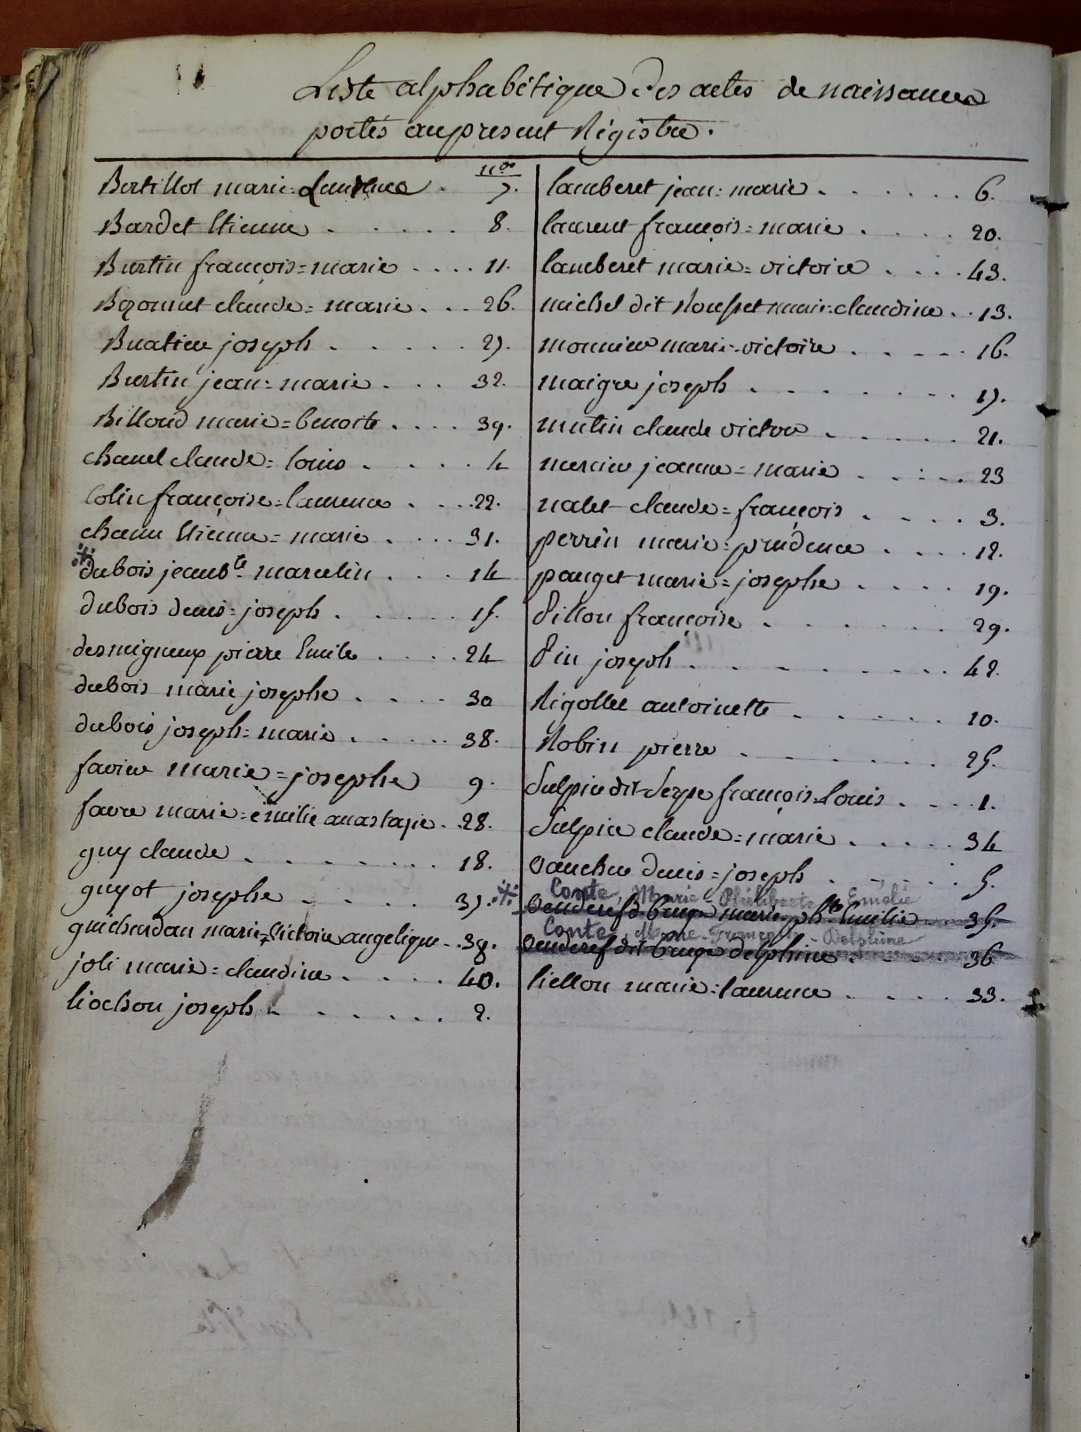 Liste alphabétique des actes de naissances
portés au present Régistre.
nos
Bertillot marie=Laurence . 7.
Bardet Etienne . . . . . . 8.
Burtin françois=marie . . . . 11.
Bozonnet claude=marie . . . 26.
Buatier joseph . . . . . . 27.
Burtin jean=marie . . . . 32.
Billoud marie=benoite . . . . 39.
chanel claude=louis . . . . . 4
Colin françoise=laurence . . . . 22.
Etienne=marie . . . . 31.
dubois jean bte marcelin . . . . 14
dubois denis=joseph . . . . . . 15.
desmigneux pierre Emile . . . . 24
dubois marie josephe . . . . 30
dubois joseph=marie . . . . . 38.
favier marie=josephe 9.
favre marie=emilie anastasie . . 28.
guy claude . . . . . . . . 18.
guyot josephe . . . . . 37.
guichardan marie Victoire angelique . . 38.
joli marie=claudine . . . . . 40.
liochon joseph . . . . . . . 2.
lamberet jean=marie . . . . . . 6.
laurent françois=marie . . . . . 20.
lamberet marie=victoire . . . . 43.
michel dit Rousset marie=claudine . . 13.
monnier marie=victoire . . . . . 16.
maigre joseph . . . . . . . . 17.
mutin claude victor . . . . . . 21.
mercier jeanne=marie . . . . . 23
nalet claude=françois . . . . 3.
perrin marie=prudence . . . . 12.
pauget marie=josephe . . . . . 19.
Pillon françoise . . . . . . . 29.
Pin joseph . . . . . . . . 42.
Rigollet antoinette . . . . . . 10.
Robin pierre . . . . . . . 25.
Sulpice dit Serpe françois=louis . . . . 1.
Sulpice claude=marie . . . . . 34
vaucher denis=joseph . . . . . 5.
Conte, Marie Philiberte Emelie
marie phte Emilie 35.
Conte, Marie Françoise Delphine
dit delphine . . . . . 36
tiellon marie=laurence . . . . 33.